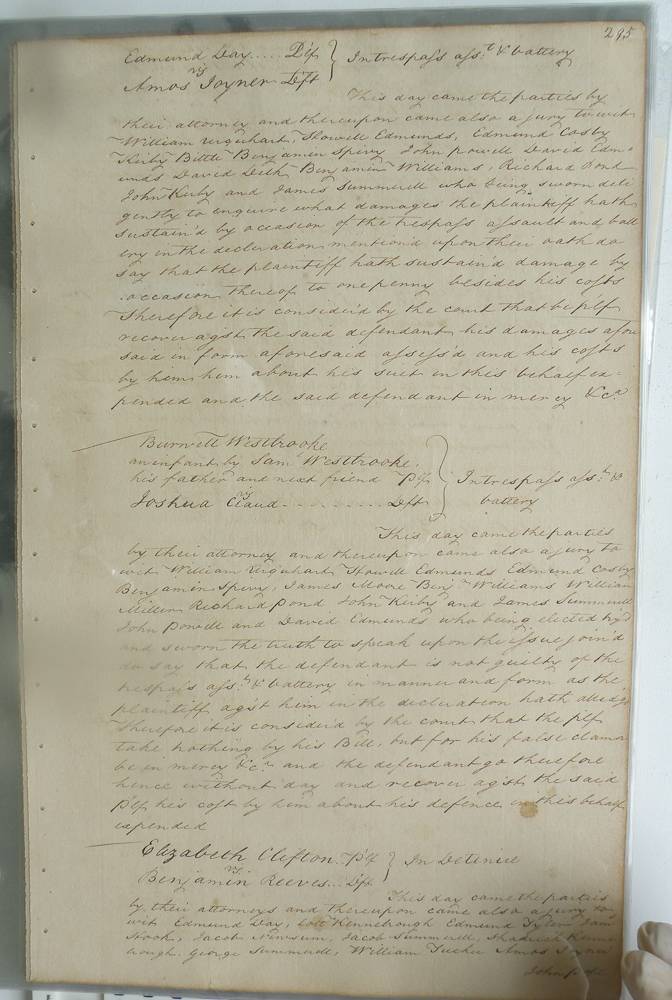 295
Edmund Day .... Plf } In trespass asst. & battery
vs
Amos Joyner Deft
This day came the parties by
their attorney and thereupon came also a jury to wit
William Urquhart, Howell Edmunds, Edmund Cosby
Kirby Bittle Benjamin Spivy John Powell David Edm=
unds David Delk Benjamin Williams, Richard Pond
John Kirby and James Summerell who being sworn dili
gently to enquire what damages the plaintiff hath
sustain'd by occasion of the trespass assault and batt
ery in the declaration mention'd upon their oath do
say that the plaintiff hath sustain'd damage by
occasion thereof to one penny besides his costs
Therefore it is consider'd by the court that the plf
recover agst. the said defendant his damages afore
said in form aforesaid assess'd and his costs
by him him about his suit in this behalf ex=
pended and the said defendant in mercy &c.
Burwell Westbrooke
an infant by Saml. Westbrooke
his father and next friend Plf } In trespass asst. &
vs battery
Joshua Claud .......... Deft
This day came the parties
by their attorney and thereupon came also a jury to
wit William Urquhart Howell Edmunds Edmund Cosby
Benjamin Spivy, James Moore Benjn. Williams William
Miller Richard Pond John Kirby and James Summerell
John Powell and David Edmunds who being elected try'd
and sworn the truth to speak upon the issue join'd
do say that the defendant is not guilty of the
trespass asst. & battery in manner and form as the
plaintiff agst him in the declaration hath alledg'd
Therefore it is consider'd by the court that the plf
take nothing by his Bill, but for his false clamor
be in mercy &c. and the defendant go therefore
hence without day and recover agst. the said
Plf his cost by him about his defence in this behalf
expended
Elizabeth Clifton Plf } In Detinue
vs
Benjamin Reeves .. Deft
This day came the parties
by their attorneys and thereupon came also a jury to
wit Edmund Day, Kennebrough Edmund Tyler
Jacob Newsum, Jacob Summerell, Shadrick
George Summerell, William Tucker Amos Joyner
John